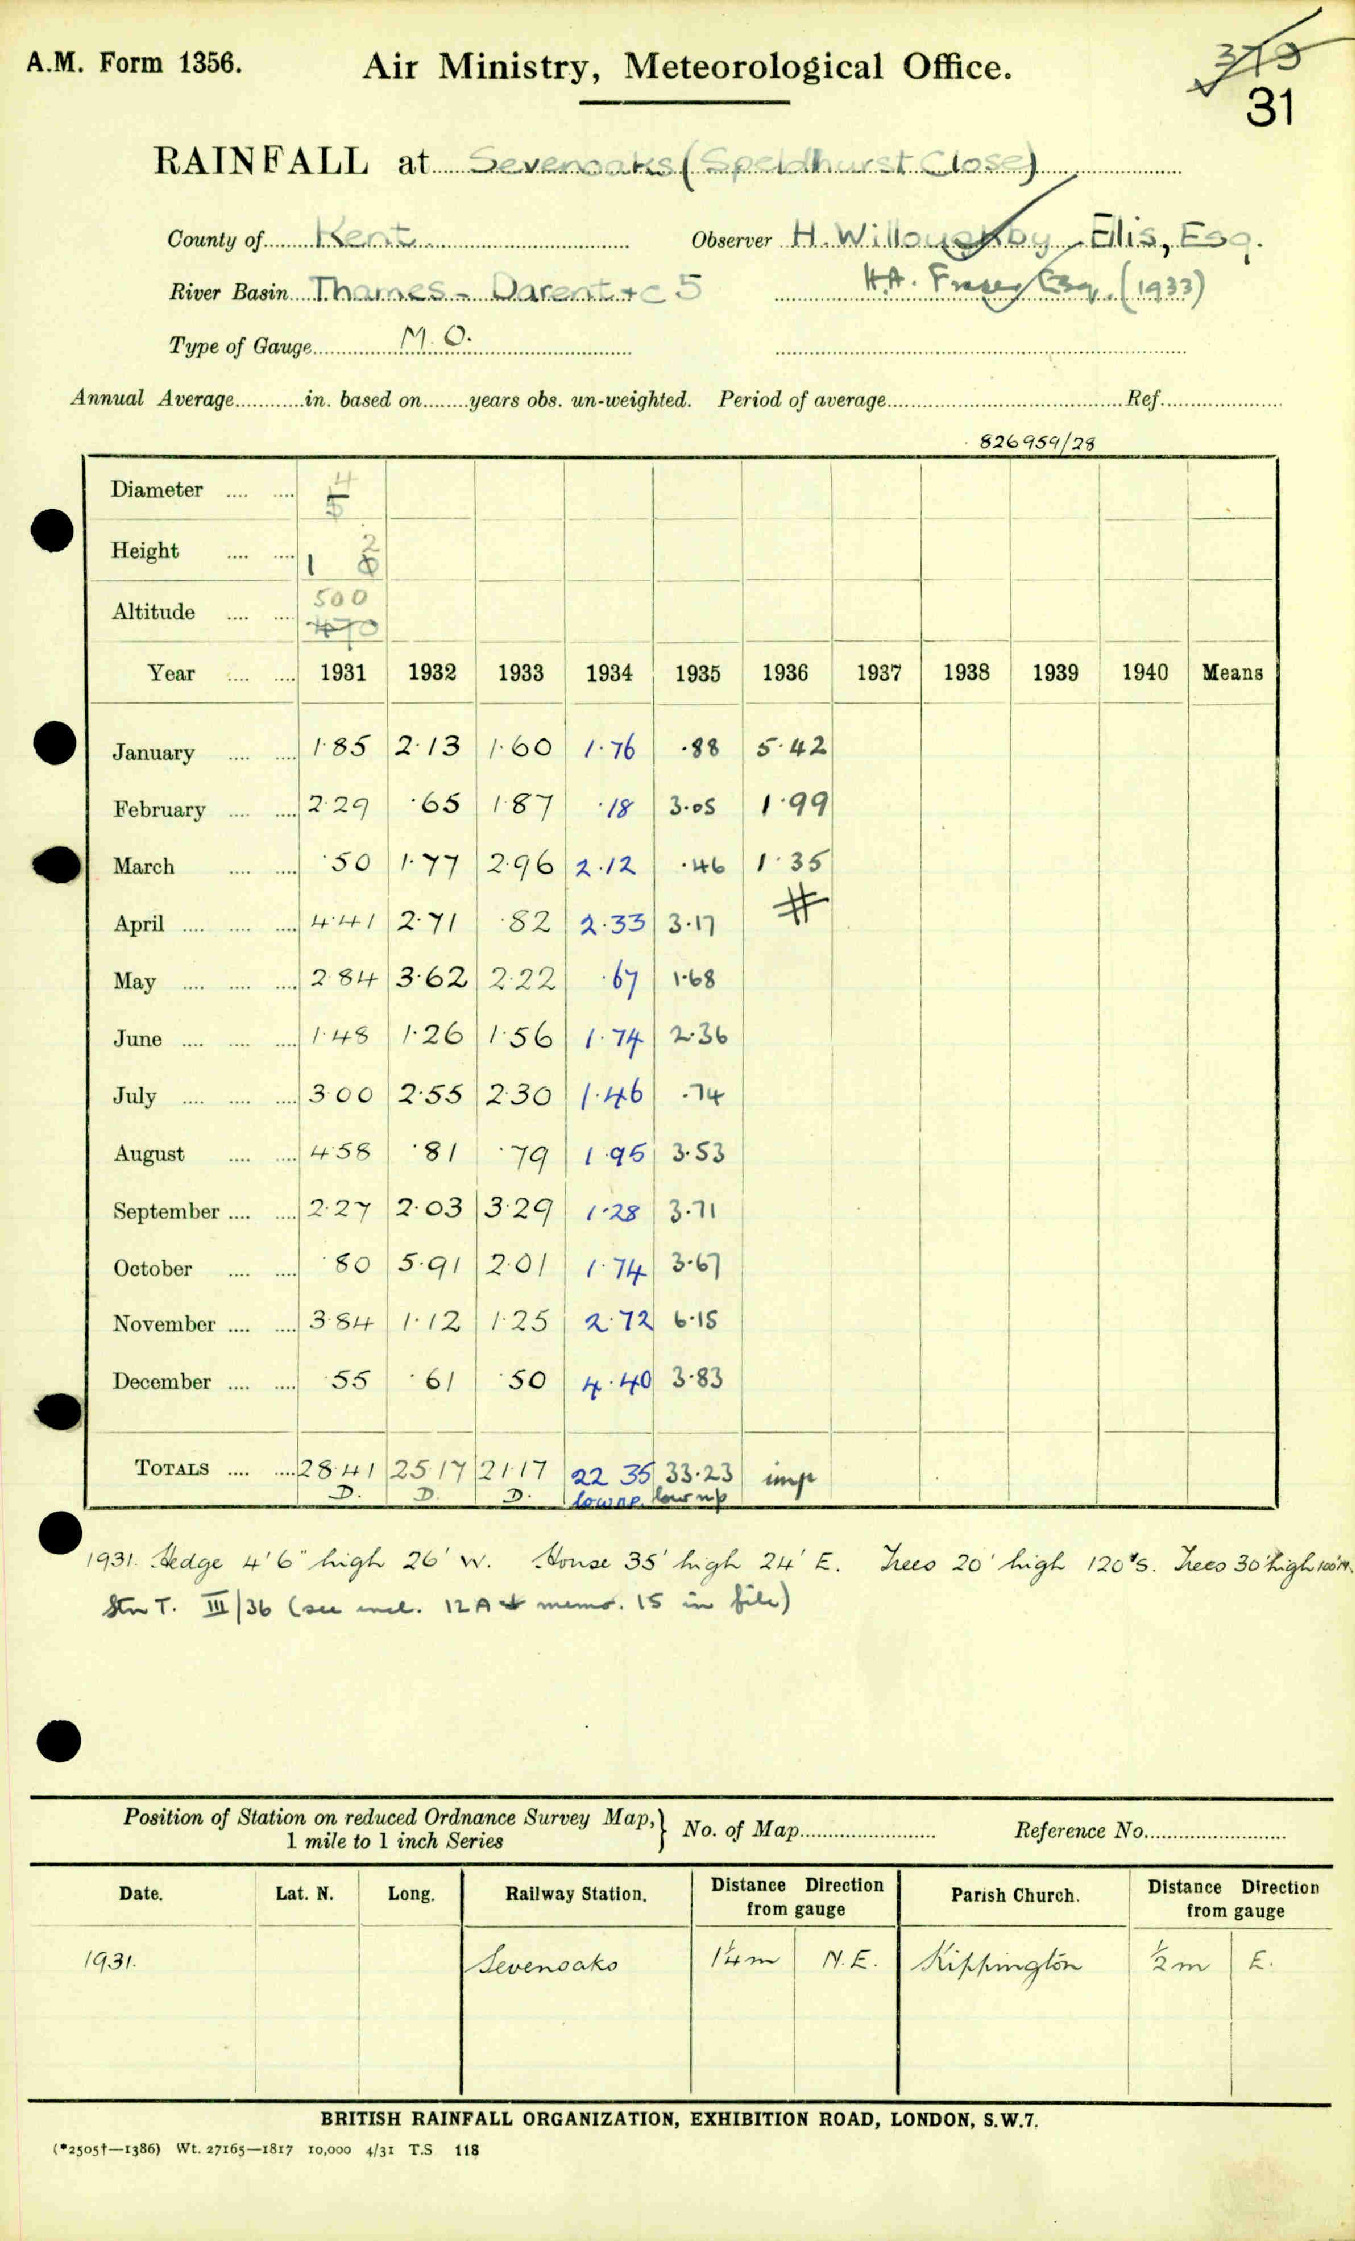 A.M. Form 1356.
Air Ministry, Meteorological Office.
379
31
RAINFALL at Sevenoaks (Speldhurst Close)
County of Kent Observer H. Willoughby Ellis, Esq.
River Basin Thames - Darent +c 5 H.A. Fraser Esq. (1933)
Type of Gauge M.O.
Annual Average in. based on years obs. un-weighted. Period of average Ref.
826959/28
Diameter 4 5
Height 1 2 0
Altitude 500 470
Year 1931 1932 1933 1934 1935 1936 1937 1938 1939 1940 Means
January 1.85 2.13 1.60 1.76 .88 5.42
February 2.29 .65 1.87 .18 3.05 1.99
March .50 1.77 2.96 2.12 .46 1.35
April 4.41 2.71 .82 2.33 3.17 #
May 2.84 3.62 2.22 .67 1.68
June 1.48 1.26 1.56 1.74 2.36
July 3.00 2.55 2.30 1.46 .74
August 4.58 .81 .79 1.95 3.53
September 2.27 2.03 3.29 1.28 3.71
October .80 5.91 2.01 1.74 3.67
November 3.84 1.12 1.25 2.72 6.15
December .55 .61 .50 4.40 3.83
TOTALS 28.41 25.17 21.17 22 35 33.23 imp
D. D. D. low np. low np
1931. Hedge 4'6" high 26' W. House 35' high 24' E. Trees 20' high 120' S. Trees 30' high 100' N.
Stn T. III/36 (see encl. 12A + memo. 15 in file)
Position of Station on reduced Ordnance Survey Map,} No. of Map Reference No.
1 mile to 1 inch Series
Date. Lat. N. Long. Railway Station. Distance Direction from gauge Parish Church. Distance Direction from gauge
1931. Sevenoaks 1¼ m N.E. Kippington ½ m E.
BRITISH RAINFALL ORGANIZATION, EXHIBITION ROAD, LONDON, S.W.7.
(*2505†—1386) Wt. 27165—1817 10,000 4/31 T.S 118